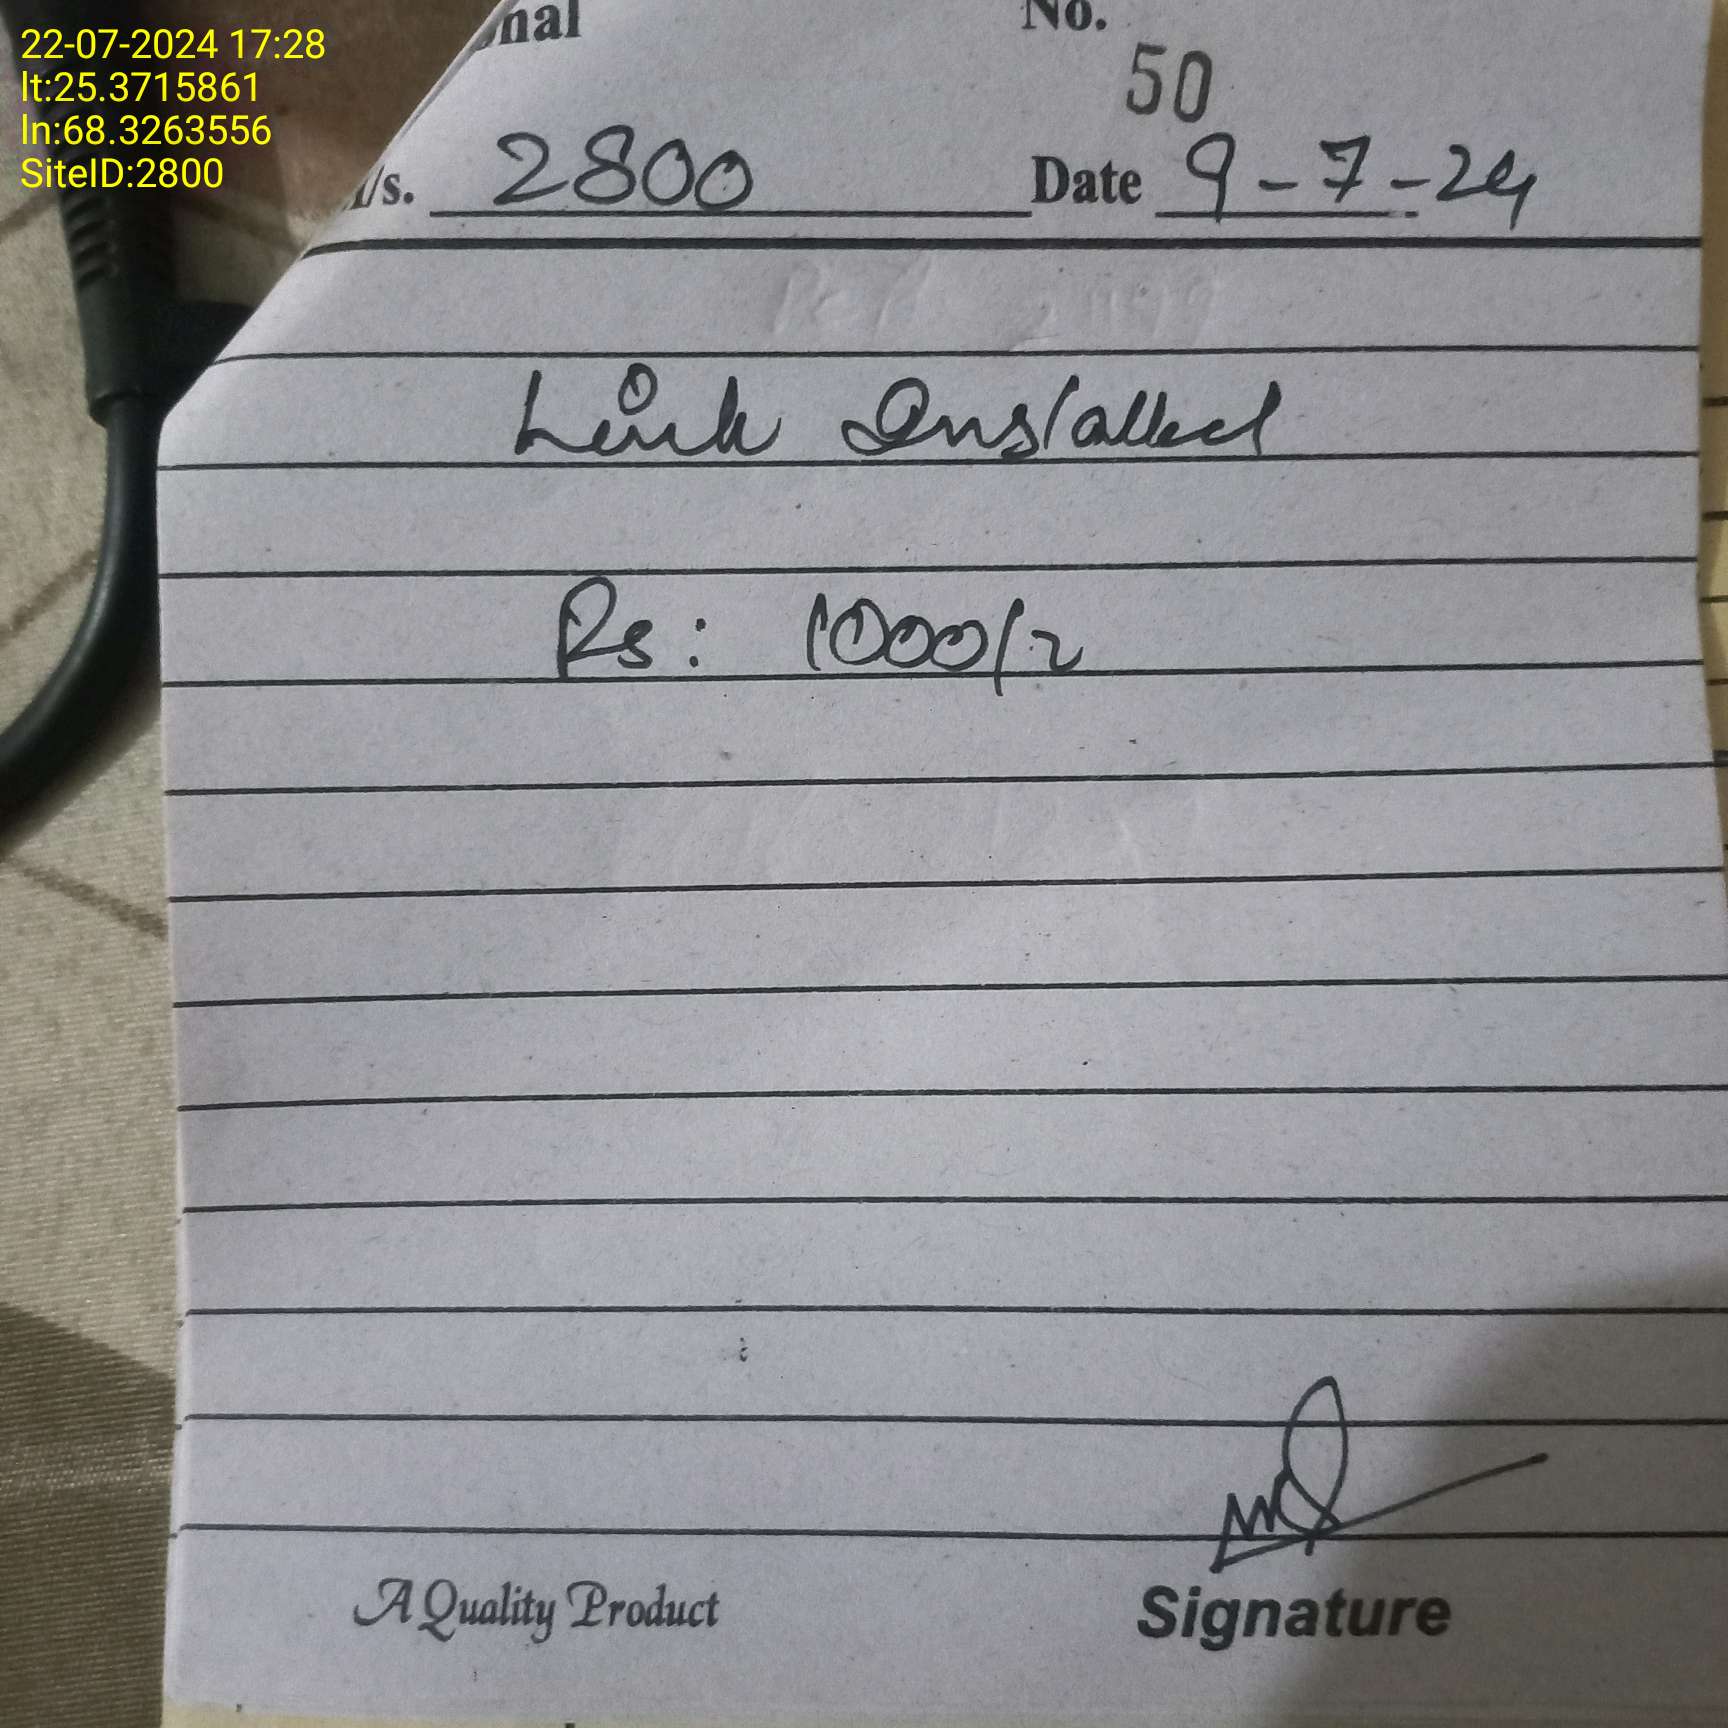 22-07-2024 17:28
lt:25.3715861
ln:68.3263556
SiteID:2800
nal No.
50
/s. 2800 Date 9-7-24
Link Installed
Rs: 1000/=
A Quality Product
Signature